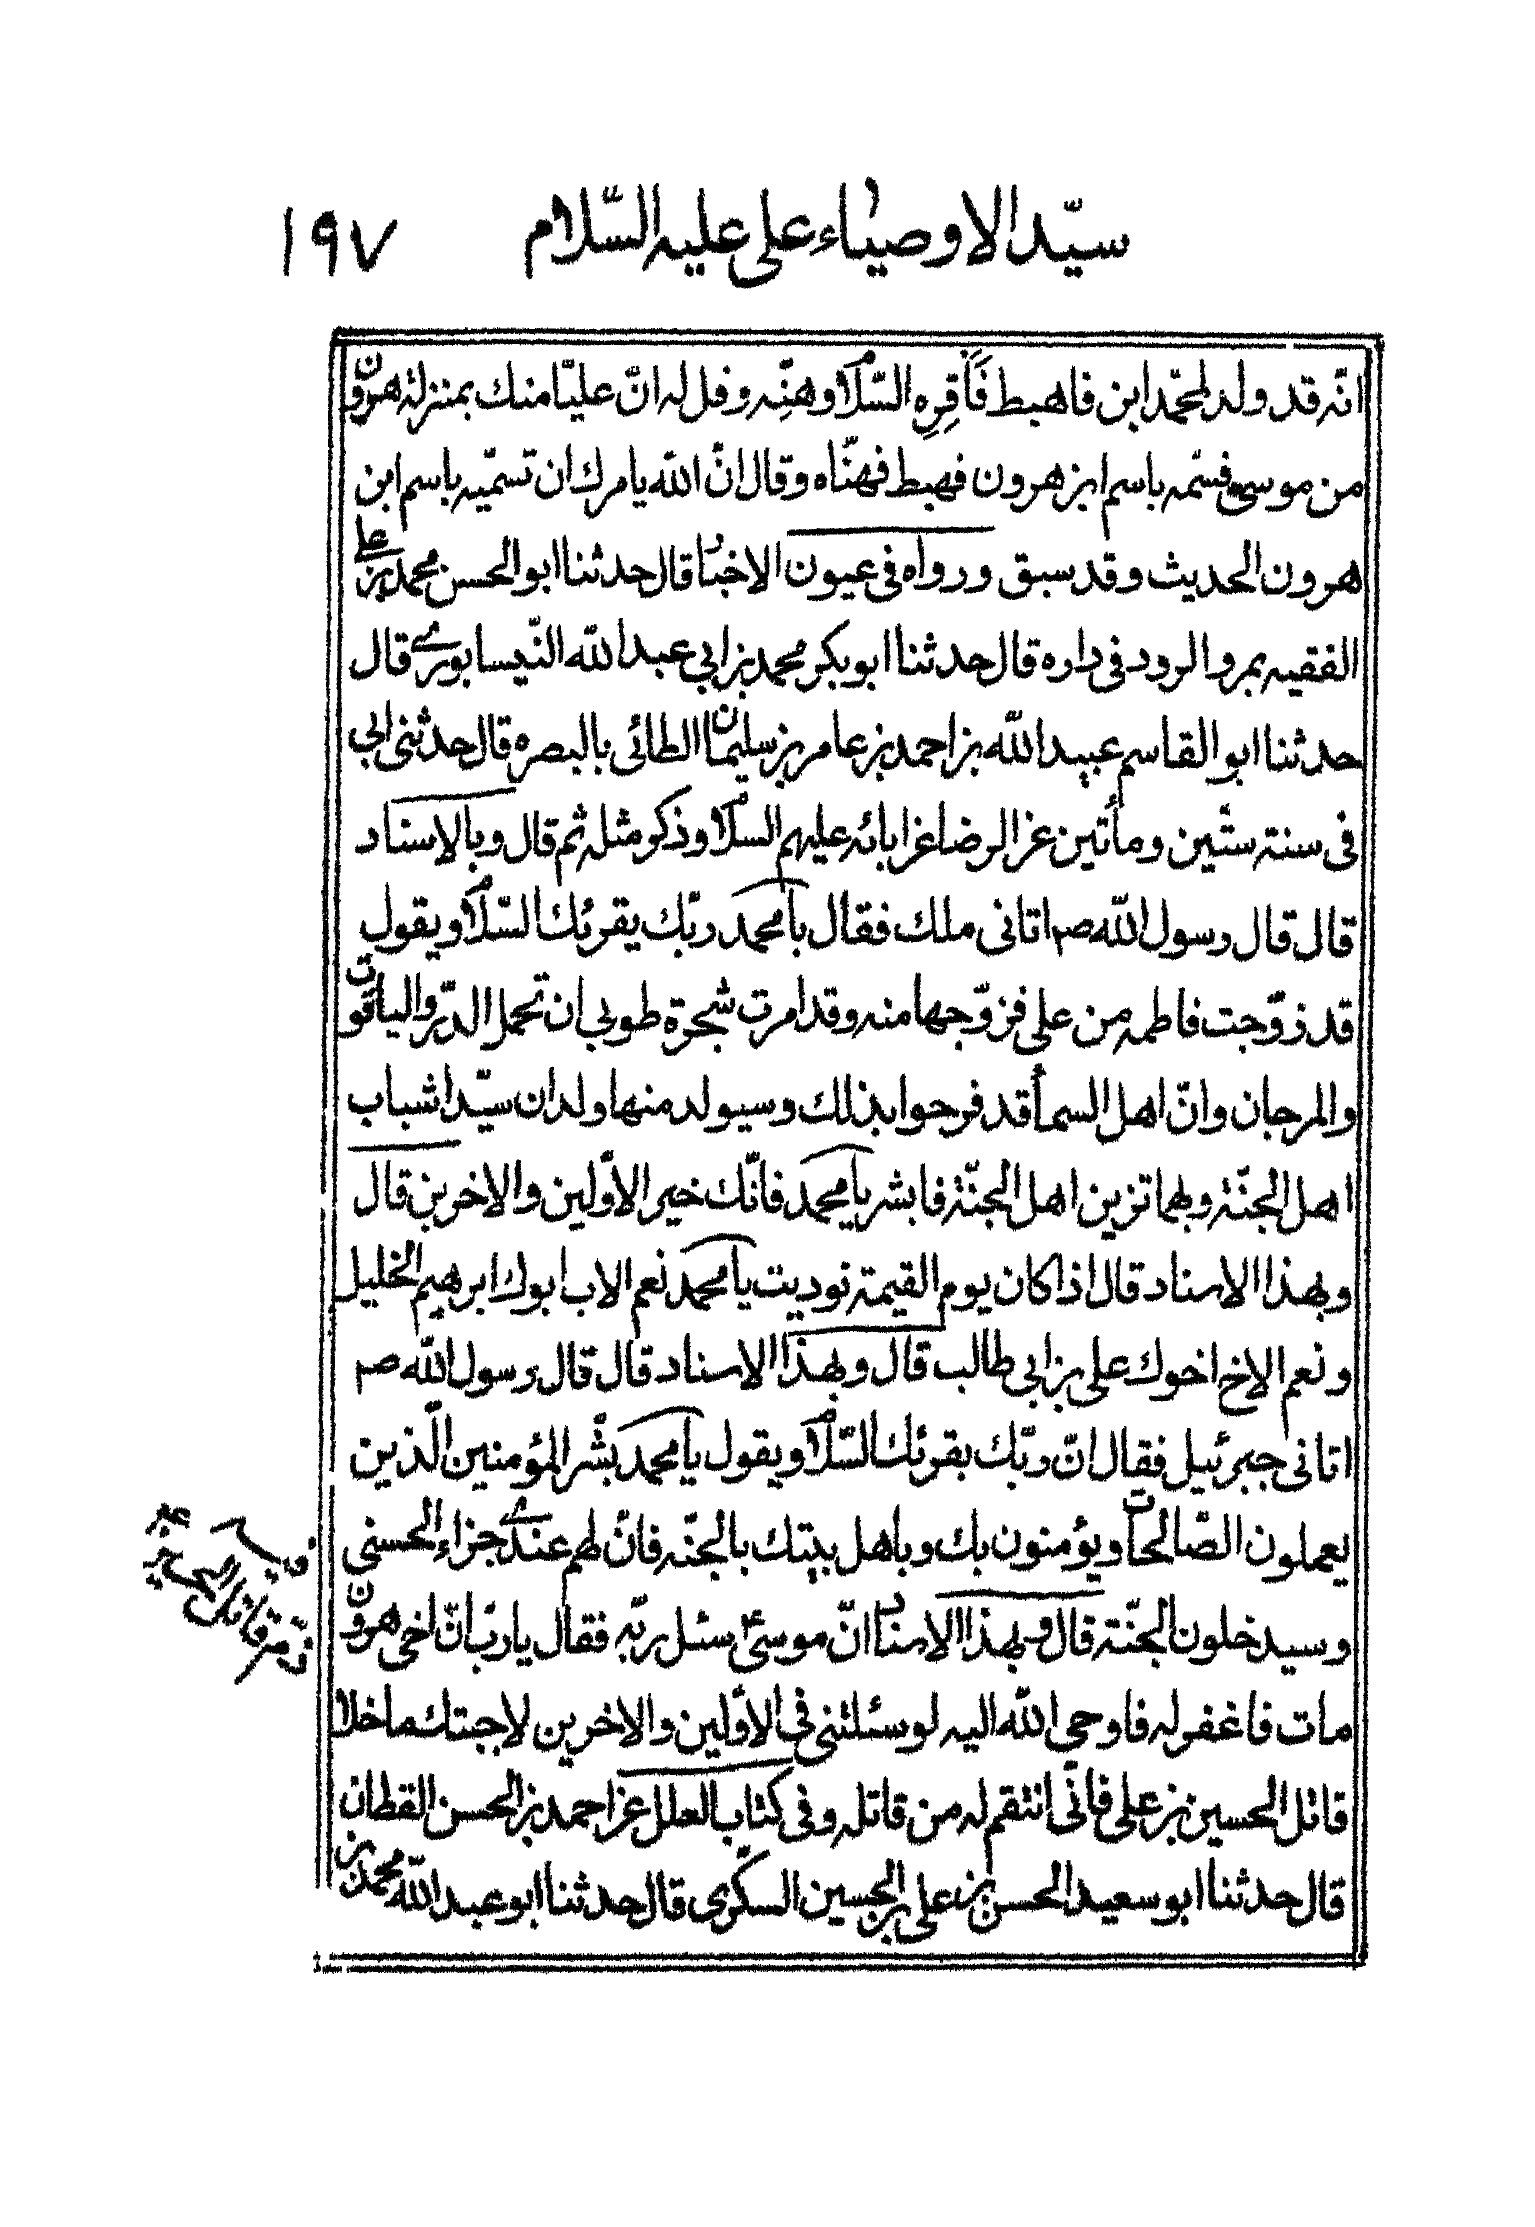 سيّد الاوصياء على عليه السّلام ١٩٧
انّه قد ولد لمحمّد ابن فاهبط فَأَقرِه السّلام وهنِّه وقل له انّ عليّا منك بمنزلة هرون
من موسى فسّمه باسم ابن هرون فهبط فهنّاه وقال انّ الله يامرك ان تسمّيه باسم ابن
هرون الحديث وقد سبق ورواه فى عيون الاخبار قال حدثنا ابو الحسن محمد بن على
الفقيه بمرو الرود فى داره قال حدثنا ابو بكر محمد بن ابي عبد الله النّيسابورى قال
حدثنا ابو القاسم عبيد الله بن احمد بن عامر بن سليمان الطائى بالبصره قال حدثنى ابي
فى سنة ستّين ومأتين عن الرضا عن ابائه عليهم السلام وذكر مثله ثم قال وبالاسناد
قال قال رسول الله ص اتانى ملك فقال يا محمد ربّك يقرئك السّلام ويقول
قد زوّجت فاطمه من على فزوّجها منه وقد امرت شجرة طوبي ان تحمل الدّر والياقوت
والمرجان وانّ اهل السمأ قد فرحوا بذلك وسيولد منها ولدان سيّدا شباب
اهل الجنّة وبهما تزين اهل الجنّة فابشر يا محمد فانّك خير الاوّلين والاخرين قال
وبهذا الاسناد قال اذا كان يوم القيمة نوديت يا محمد نعم الاب ابوك ابرهيم الخليل
ونعم الاخ اخوك على بن ابي طالب قال وبهذا الاسناد قال قال رسول الله ص
اتانى جبرئيل فقال انّ ربّك يقرئك السّلام ويقول يا محمد بشّر المؤمنين الّذين
يعملون الصّالحات ويؤمنون بك وباهل بيتك بالجنّه فانّ لهم عندى جزاء الحسنى
وسيدخلون الجنّة قال وبهذا الاسناد انّ موسى سئل ربّه فقال يا ربّ انّ اخى هرون
مات فاغفر له فاوحى الله اليه لو سئلتنى فى الاوّلين والاخرين لاجبتك ما خلا
قاتل الحسين بن على فانّى انتقم له من قاتله وفى كتاب العلل عن احمد بن الحسن القطان
قال حدثنا ابو سعيد الحسن بن على بن الحسين السكّرى قال حدثنا ابو عبد الله محمد بن